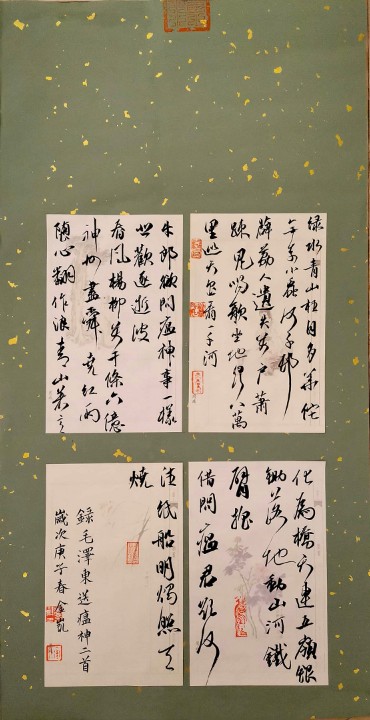 绿水青山枉自多華佗
無奈小蟲何千邨
薜荔人遺矢萬户蕭
疎鬼唱歌坐地日行八萬
里巡天遥看一千河
牛郎欲問瘟神事一樣
悲歡逐逝波
春風楊柳萬千條六億
神州盡舜堯紅雨
隨心翻作浪青山著意
化為橋天連五嶺銀
鋤落地動山河鐵
臂摇
借問瘟君欲何
往紙船明燭照天
燒
錄毛澤東送瘟神二首
歲次庚子春